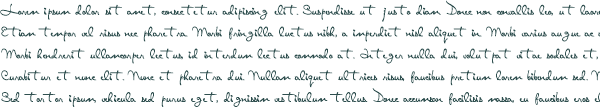 Lorem ipsum dolor sit amet, consectetur adipiscing elit. Suspendisse ut justo diam. Donec non convallis leo, ut laor
Etiam tempor vel risus nec pharetra. Morbi fringilla luctus nibh, a imperdiet nisl aliquet in. Morbi varius augue ac
Morbi hendrerit ullamcorper lectus id interdum lectus commodo at. Integer nulla dui, volutpat vitae sodales et,
Curabitur et nunc elit. Nunc et pharetra dui. Nullam aliquet ultrices risus, faucibus pretium lorem bibendum sed. N
Sed tortor ipsum, vehicula sed purus eget, dignissim vestibulum tellus. Donec accumsan facilisis massa, eu faucibus eros